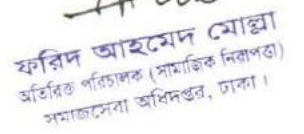 ফরিদ আহমেদ মোল্লা
অতিরিক্ত পরিচালক (সামাজিক নিরাপত্তা)
সমাজসেবা অধিদপ্তর, ঢাকা।